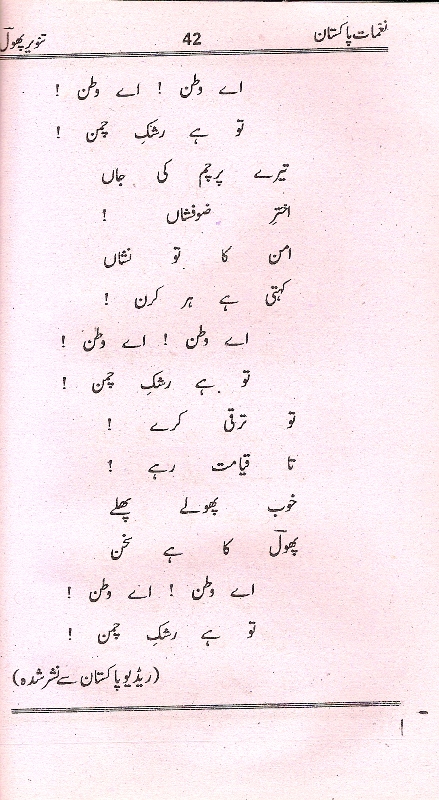 نغمات پاکستان 42 تنویر پھولؔ
اے وطن ! اے وطن !
تو ہے رشکِ چمن !
تیرے پرچم کی جاں
اخترِ ضوفشاں !
امن کا تو نشاں
کہتی ہے ہر کرن !
اے وطن ! اے وطن !
تو ہے رشکِ چمن !
تو ترقی کرے !
تا قیامت رہے !
خوب پھولے پھلے
پھولؔ کا ہے سخن
اے وطن ! اے وطن !
تو ہے رشکِ چمن !
(ریڈیو پاکستان سے نشر شدہ)